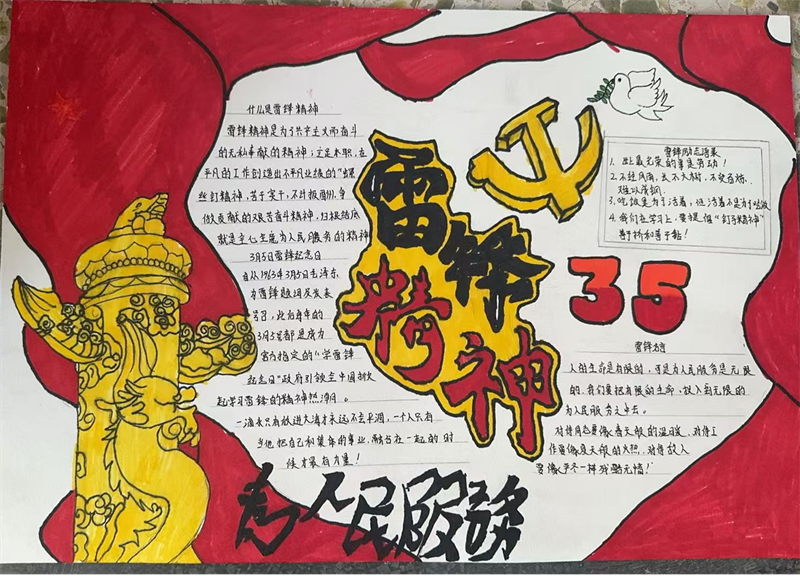 什么是雷锋精神
雷锋精神是为了共产主义而奋斗
的无私奉献的精神；立足本职，在
平凡的工作创造出不平凡业绩的“螺
丝钉精神，苦干实干，不计报酬，争
做贡献的艰苦奋斗精神，归根结底
就是全心全意为人民服务的精神
3月5日雷锋纪念日
自从1963年3月5日毛泽东
为雷锋题词及发表
号召，此后每年的
3月5号都是
官方指定的“学雷锋
纪念日”政府引领全中国
起学习雷锋的精神热潮日。
一滴水只有放进大海才永远不会干涸，一个人只有
当他把自己和集体的事业，融合在一起的时
候才最有力量！
雷锋
精神
为人民服務
雷锋励志语录
1.世上最光荣的事是劳动！
2.不经风雨，长不大树，不受百炼，
难以成钢
3.吃饭是为了活着，但活着不是为了吃饭
4.我们在学习上，要提倡“钉子精神”
善于挤和善于钻！
35
雷锋名言
人的生命是有限的，可是为人民服务是无限
的，我们要把有限的生命，投入到无限的
为人民服务之中去。
对待同志要像春天般的温暖，对待工
作要像夏天般的火热，对待敌人
要像严冬一样残酷无情！